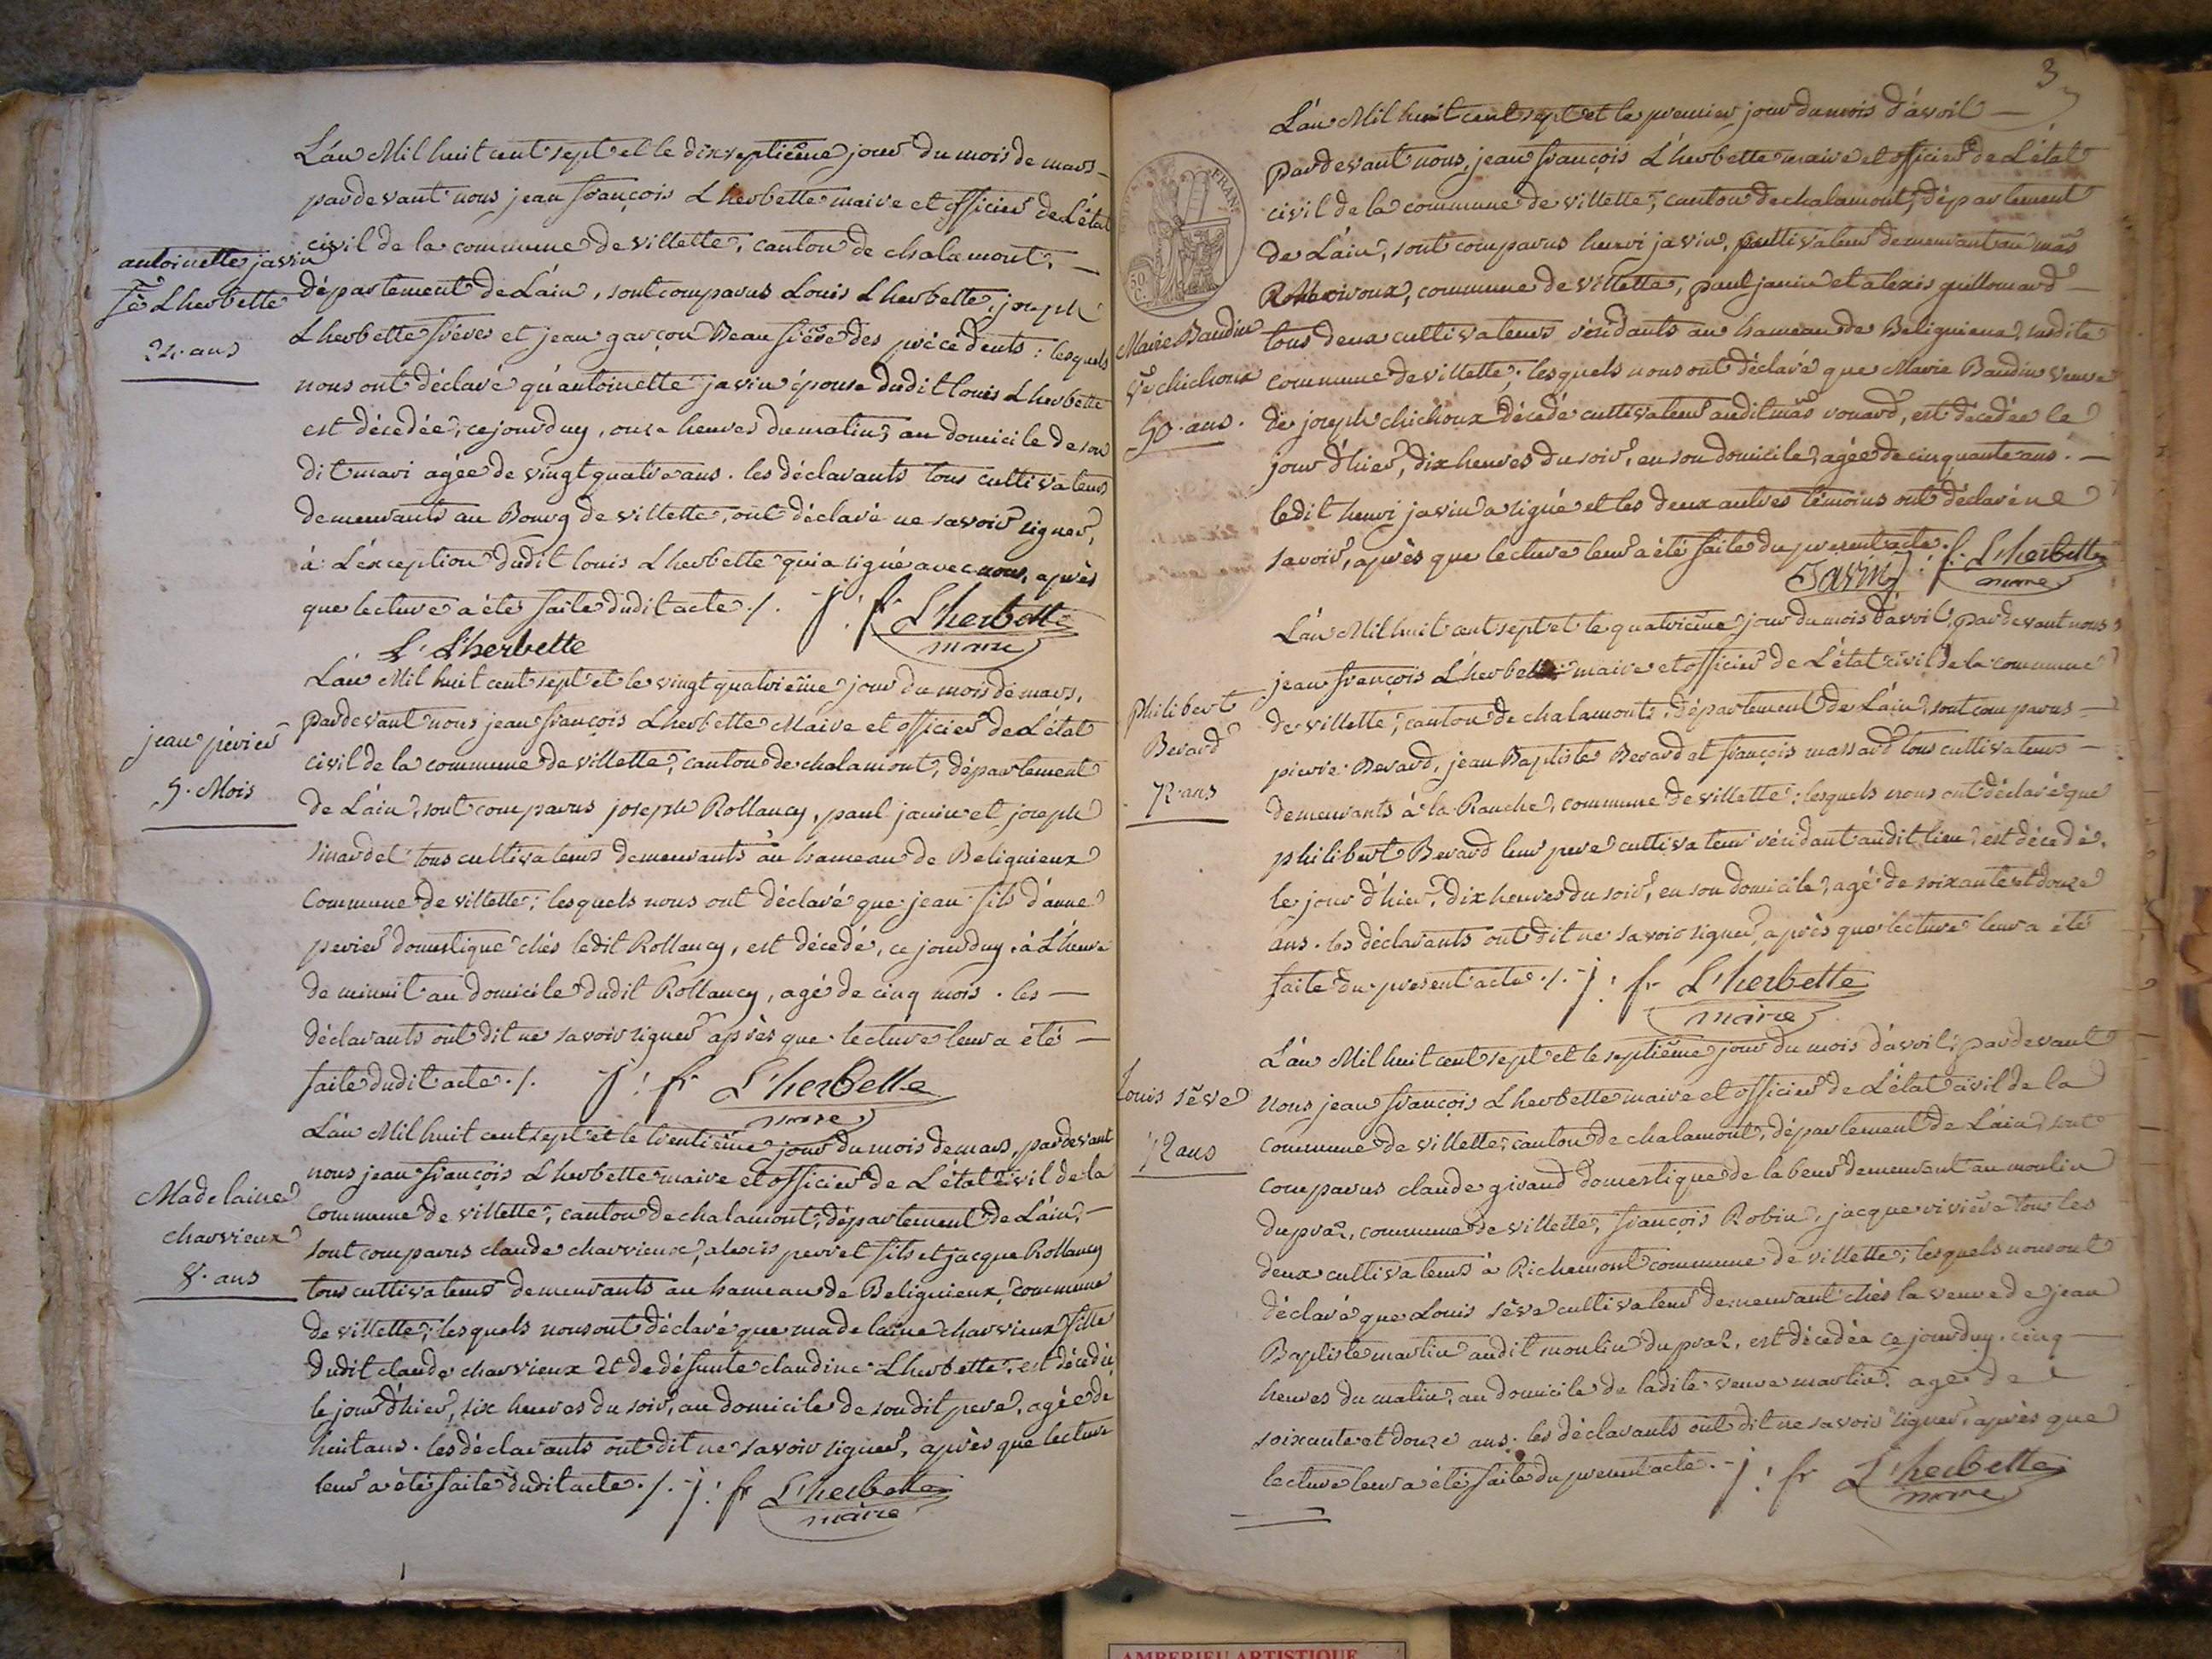 L'an Mil huit cent sept et le dixseptième jour du mois de mars
pardevant nous jean françois Lherbette maire et officier de L'état
civil de la commune de villette, canton de chalamont,
antoinette javin
fe Lherbette
24 ans
département de L'ain, sont comparus Louis Lherbette, joseph
Lherbette frères et jean garçon Beau frère des précédents : lesquels
nous ont déclaré qu'antoinette javin épouse dudit louis Lherbette
est décedée, cejourduy, onze heures du matin, au domicile de son
dit mari agée de vingt quatre ans. les déclarants tous cultivateurs
demeurants au Bourg de villette, ont déclaré ne savoir signer,
à L'exception dudit louis Lherbette qui a signé avec nous, après
que lecture a été faite dudit acte ./.
j. fr L'herbette
maire
L. L'herbette
L'an Mil huit cent sept et le vingt quatrième jour du mois de mars,
pardevant nous jean françois Lherbette Maire et officier de L'état
jean périer
5. Mois
civil de la commune de villette, canton de chalamont, département
de L'ain, sont comparus joseph Rollancy, paul janin et joseph
sinardet tous cultivateurs demeurants au hameau de Beliguieux
Commune de villette; lesquels nous ont déclaré que jean fils d'anne
perier domestique chés ledit Rollancy, est décedé, ce jourduy, à L'heure
de minuit au domicile dudit Rollancy, agé de cinq mois. les
déclarants ont dit ne savoir signer après que lecture leur a été
faite dudit acte ./. j. fr L'herbette
maire
L'an Mil huit cent sept et le trentième jour du mois de mars, pardevant
nous jean françois Lherbette maire et officier de L'état civil de la
Madelaine
charvieux
8. ans
commune de villette, canton de chalamont, département de L'ain,
sont comparus claude charvieux, alexis perret fils et jacque Rollancy
tous cultivateurs demeurants au hameau de Beliguieux, commune
de villette; lesquels nous ont déclaré que madelaine charvieux fille
dudit claude charvieux et de défunte claudine Lherbette, est décedée
le jour d'hier, six heures du soir, au domicile de son dit pere, agée de
huit ans. les déclarants ont dit ne savoir signer, après que lecture
leur a été faite dudit acte ./. j. fr L'herbette
maire
3
L'an Mil huit cent sept et le premier jour du mois d'avril
FRAN
pardevant nous, jean françois Lherbette maire et officier de L'état
civil de la commune de villette, canton de chalamont, département
de L'ain, sont comparus henri javin, cultivateur demeurant au mas
commune de villette, paul janin et alexis guillomard
Marie Baudin
ve chichoux
50. ans.
tous deux cultivateurs résidants au hameau de Beliguieux, susdite
commune de villette; lesquels nous ont déclaré que Marie Baudin veuve
de joseph chichoux décedé cultivateur audit mas rouard, est décedée le
jour d'hier, dix heures du soir, en son domicile, agée de cinquante ans.
ledit henri javin a signé et les deux autres témoins ont déclaré ne
savoir, après que lecture leur a été faite du present acte.
Javin j. f. L'herbette
maire
L'an Mil huit cent sept et le quatrième jour du mois d'avril, pardevant nous
jean françois Lherbette maire et officier de L'état civil de la commune
Philibert
Berard
72 ans
de villette, canton de chalamont, département de L'ain, sont comparus
pierre Berard, jean Baptiste Berard et françois massard tous cultivateurs
demeurants à la Ranche, commune de villette; lesquels nous ont déclaré que
philibert Berard leur pere cultivateur résidant audit lieu, est décedé,
le jour d'hier, dix heures du soir, en son domicile, agé de soixante et douze
ans. les déclarants ont dit ne savoir signer, après que lecture leur a été
faite du present acte ./. j. fr L'herbette
maire
L'an Mil huit cent sept et le septième jour du mois d'avril; pardevant
Louis sève
72 ans
nous jean françois Lherbette maire et officier de L'état civil de la
commune de villette, canton de chalamont, département de L'ain, sont
comparus claude giraud domestique de labeur demeurant au moulin
du praz, commune de villette, françois Robin, jacque rivière tous les
deux cultivateurs à Richemont commune de villette; lesquels nous ont
déclaré que Louis sève cultivateur demeurant chés la veuve de jean
Baptiste martin audit moulin du praz, est décedée ce jourduy, cinq
heures du matin, au domicile de ladite veuve martin, agé de
soixante et douze ans. les déclarants ont dit ne savoir signer, après que
lecture leur a été faite du present acte. j. fr L'herbette
maire
AMBERIEU ARTISTIQUE